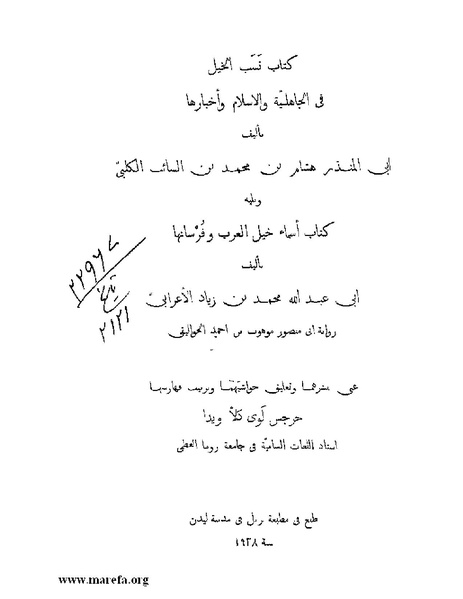 كتاب نَسَب الخيل
فى الجاهليّة والاسلام وأخبارها
تأليف
ابى المنذر هشام بن محمد بن السائب الكلبىّ
ويليه
كتاب أسماء خيل العرب وفُرْسانها
تأليف
ابى عبد الله محمد بن زياد الأعرابىّ
رواية ابى منصور موهوب بن احمد الجواليقى
٢٢٩٦٧
تاريخ
٢١٢١
عنى بنشرهما وتعليق حواشيهما وترتيب فهارسهما
جرجس لَوى دَلّا ويدا
استاذ اللغات الساميّة فى جامعة روما العظمى
طبع فى مطبعة بريل فى مدينة ليدن
سنة ١٩٢٨
www.marefa.org